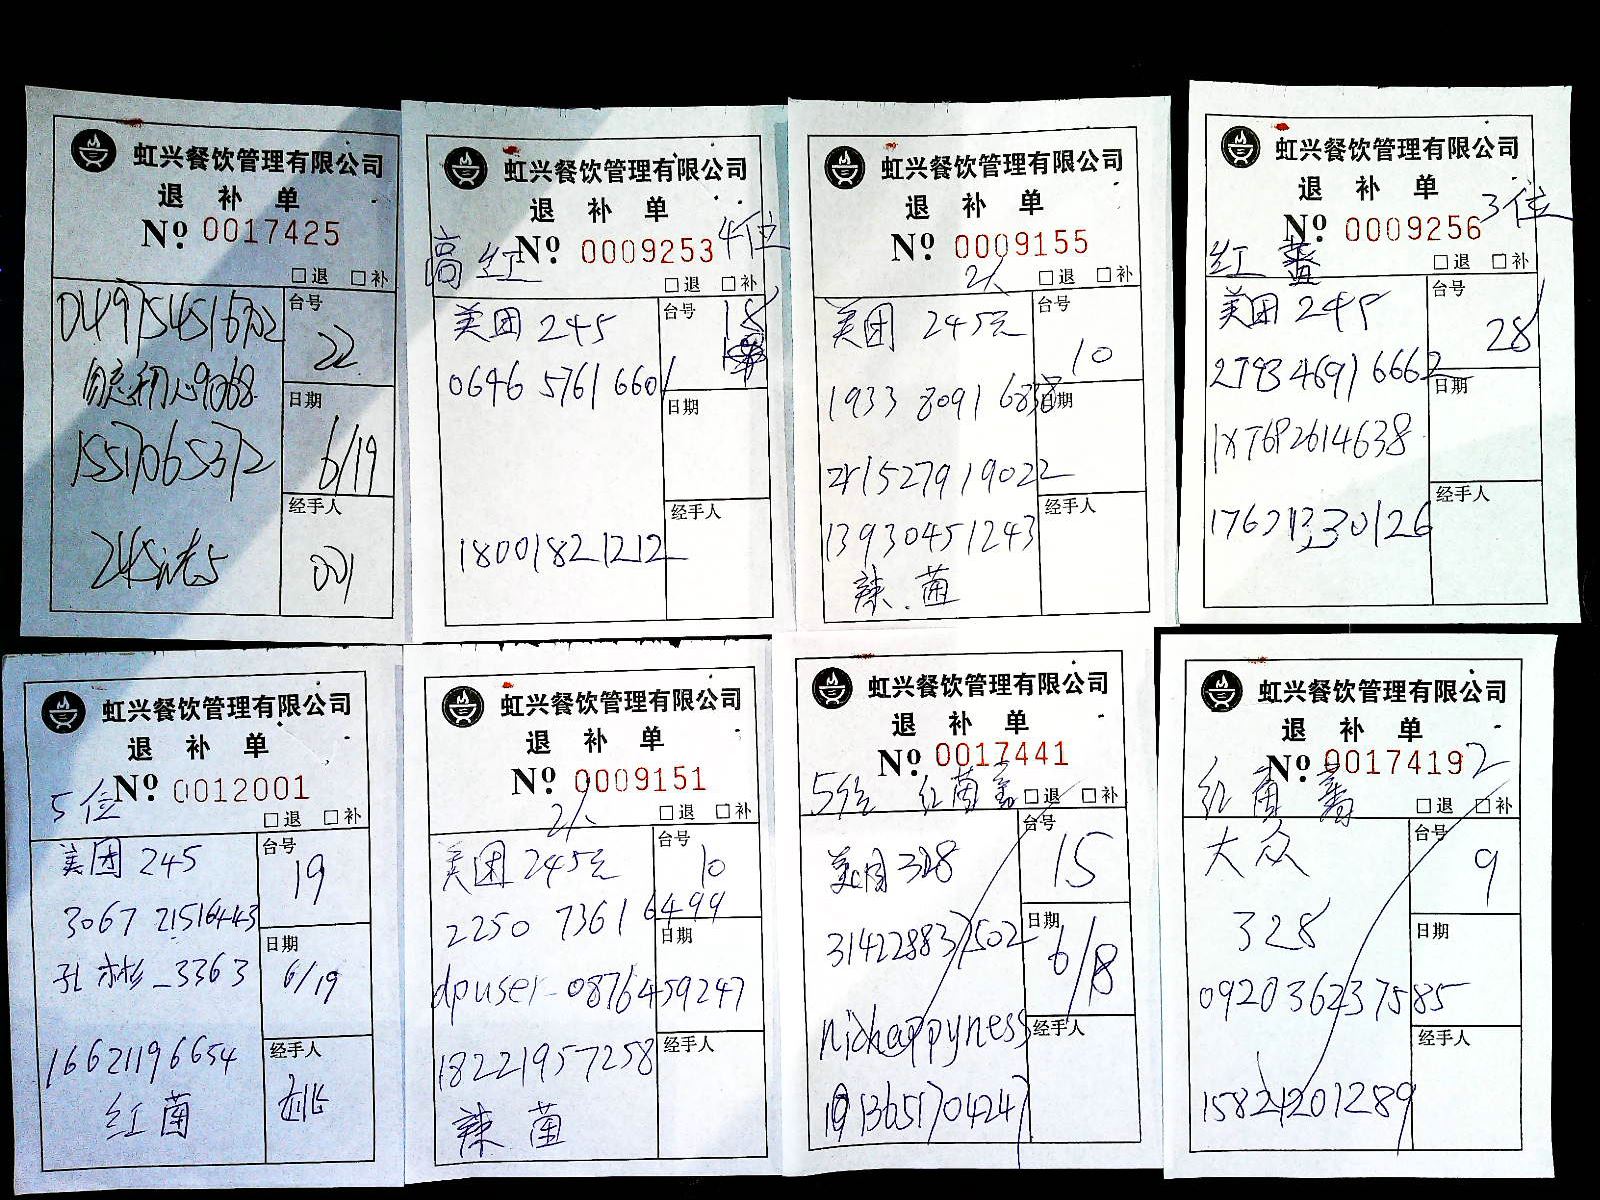 虹兴餐饮管理有限公司
退 补 单
No. 0017425
□退 □补
台号
22
勿忘初心9068
15517065372
日期
6/19
245
经手人
001
虹兴餐饮管理有限公司
退 补 单
No. 0009253 4位
高 红
□退 □补
美团 245
台号
18
0646 5761 6601
日期
经手人
18001821212
虹兴餐饮管理有限公司
退 补 单
No. 0009155
2人
□退 □补
美团 245元
台号
10
1933 8091 6838
日期
13930451243
经手人
辣.菌
虹兴餐饮管理有限公司
退 补 单
No. 0009256 3位
红
□退 □补
美团 245
台号
28
2793 4691 6662
日期
经手人
虹兴餐饮管理有限公司
退 补 单
No. 0012001
5位
□退 □补
美团 245
台号
19
3067 21516443
日期
孔彬_3363
6/19
16621196654
经手人
姚
红菌
虹兴餐饮管理有限公司
退 补 单
No. 0009151
2人
□退 □补
美团 245元
台号
10
2250 7361 6499
日期
dpuser-0876459247
18221957258
经手人
辣 菌
虹兴餐饮管理有限公司
退 补 单
No. 0017441
5位 红菌
□退 □补
美团 328
台号
15
314228837502
日期
6/18
nichappyness
经手人
13651704247
虹兴餐饮管理有限公司
退 补 单
No. 0017419 2
红 菌
□退 □补
大众
台号
9
328
日期
092036237585
经手人
15821201289